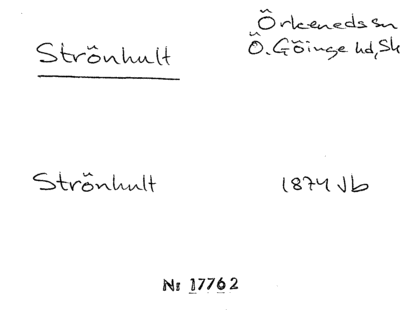 Örkeneds sn
Strönhult Ö. Göinge hd, Sk
Strönhult 1874 Jb
Nr 17762